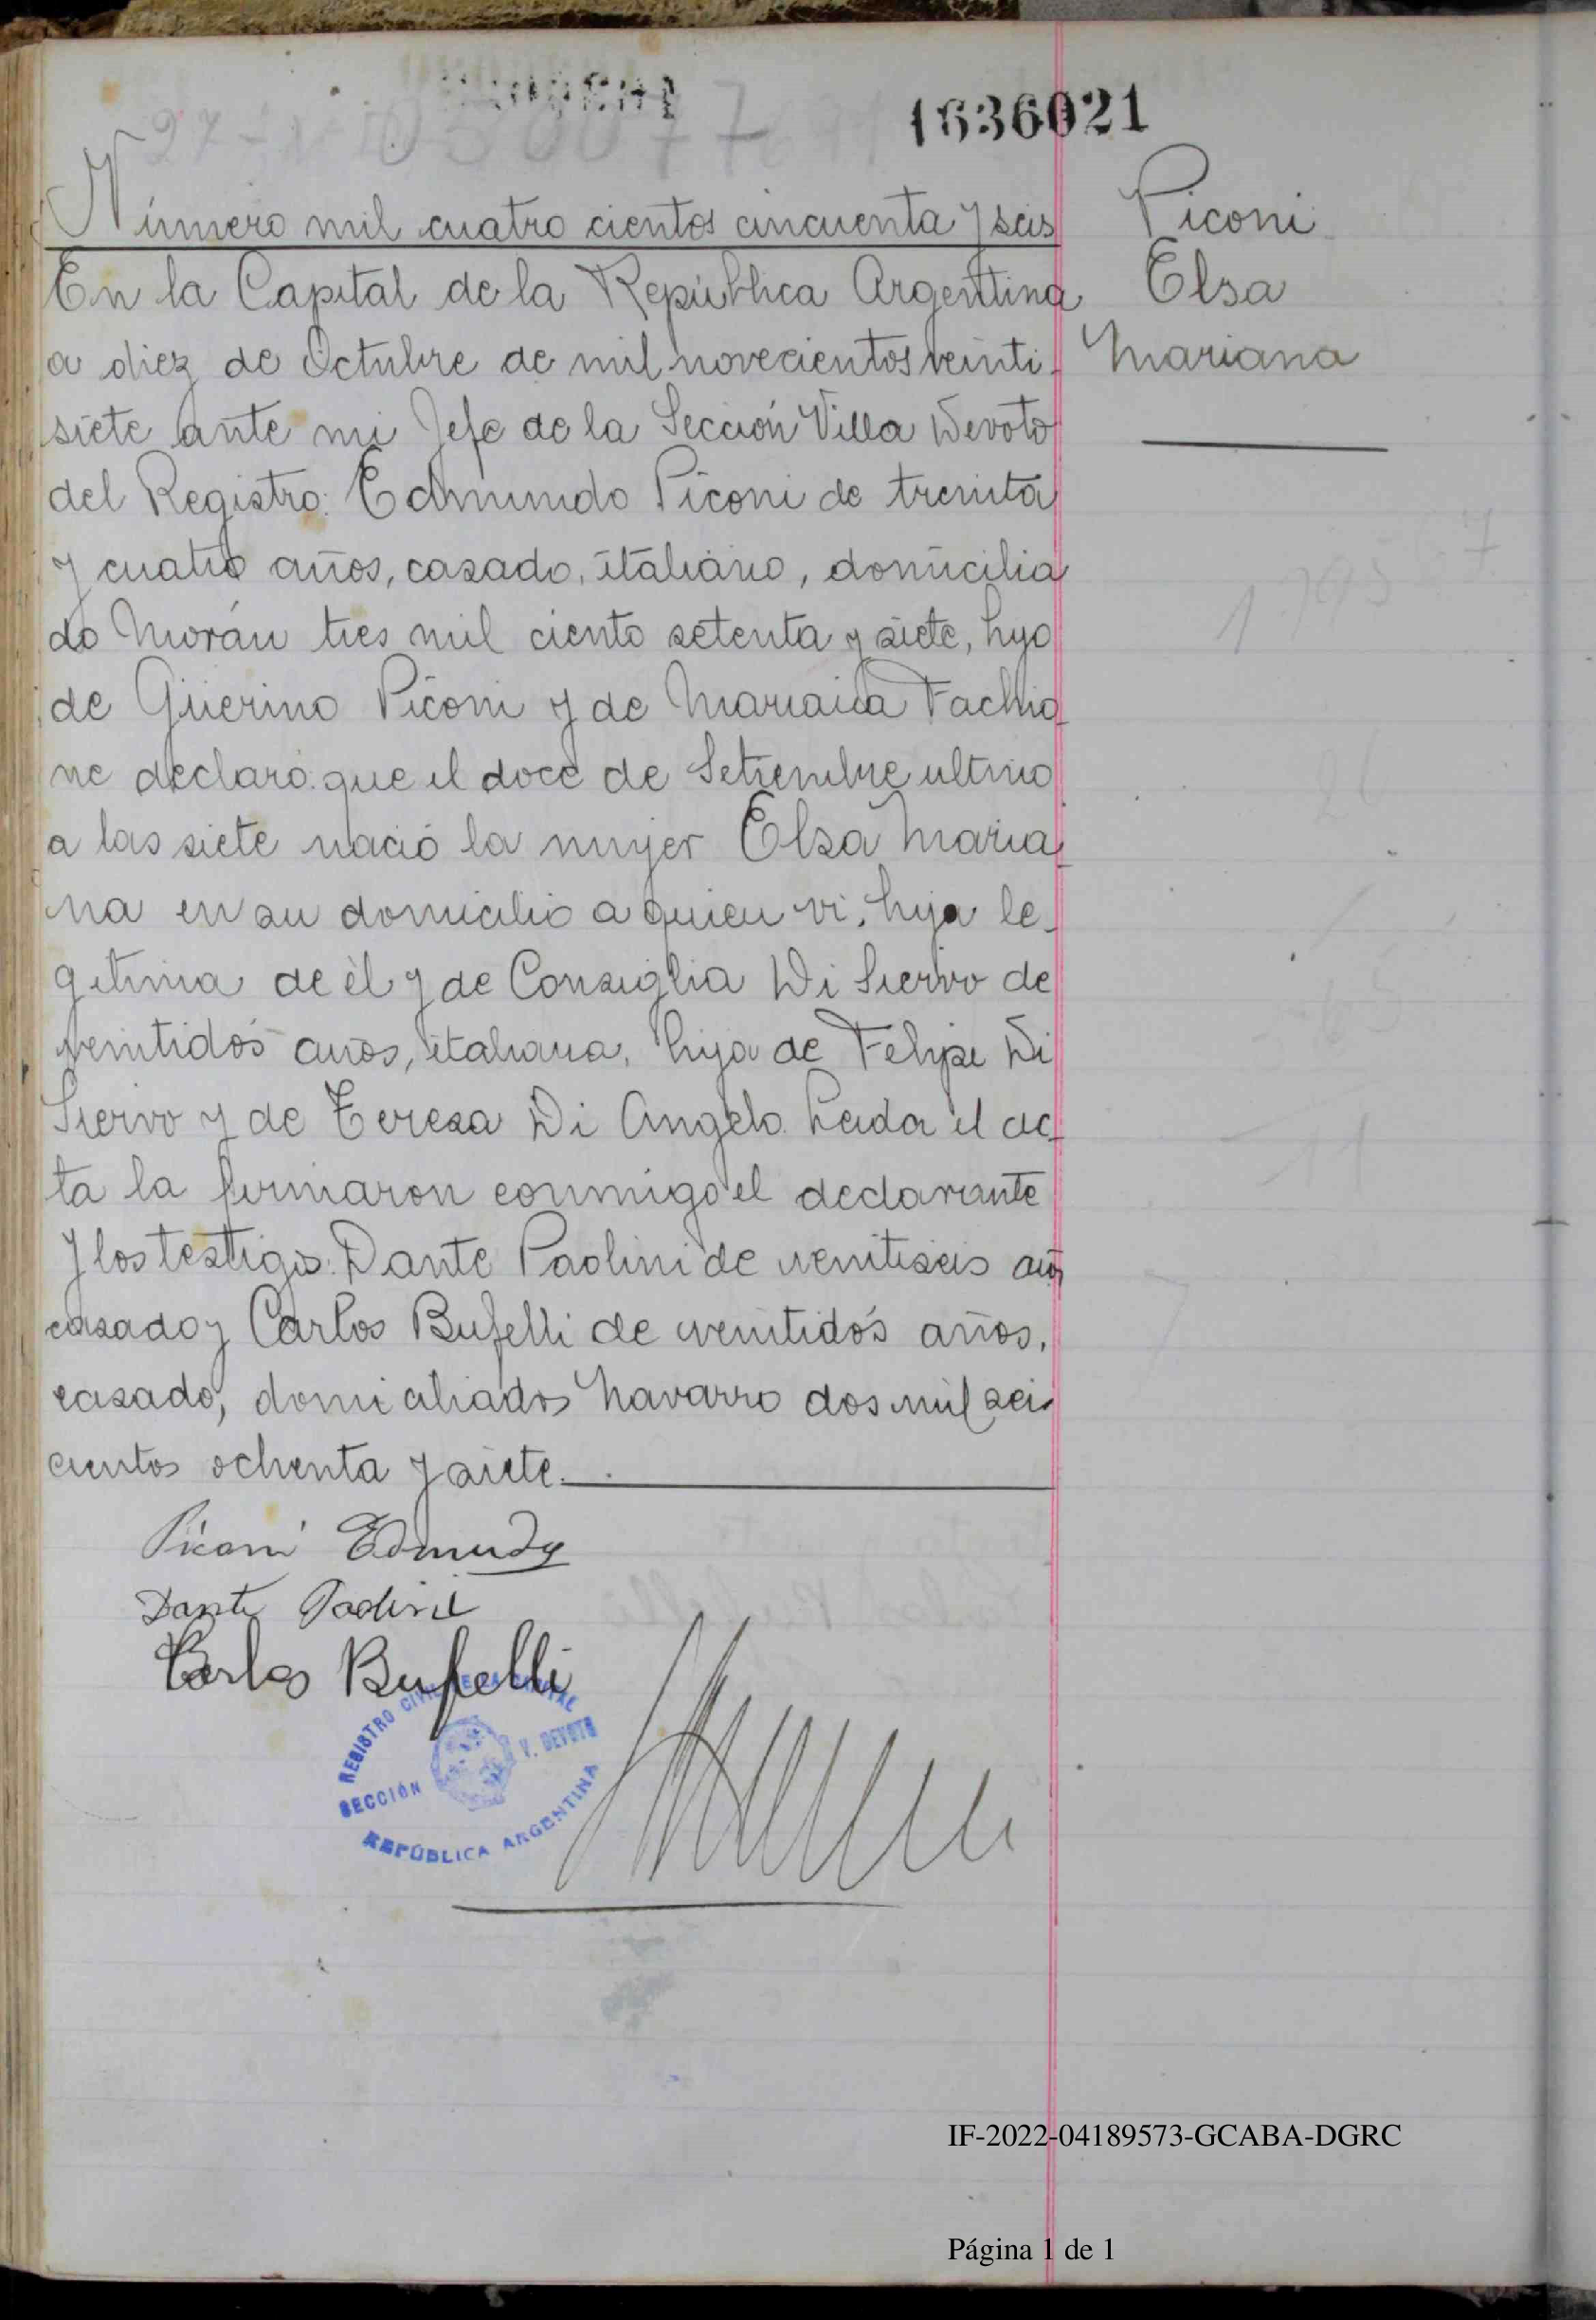 1636021
Número mil cuatro cientos cincuenta y seis
Piconi
Elsa
Mariana
En la Capital de la República Argentina
a diez de Octubre de mil novecientos veinti-
siete ante mi Jefe de la Sección Villa Devoto
del Registro: Edmundo Piconi de treinta
y cuatro años, casado, italiano, domicilia
do Morán tres mil ciento setenta y siete, hijo
de Güerino Piconi y de Mariana Fachio
ne declaró: que el doce de Setiembre ultimo
a las siete nació la mujer Elsa Maria
na en su domicilio a quien vi, hija le-
gitima de èl y de Consiglia Di Siervo de
veintidós años, italiana, hija de Felipe Di
Siervo y de Teresa Di Angelo. Leida el ac-
ta la firmaron conmigo el declarante
y los testigos: Dante Paolini de veintiseis años
casado y Carlos Bufelli de veintidós años,
casado, domiciliados Navarro dos mil seis
cientos ochenta y siete.
Piconi Edmundo
Dante Paolini
Carlos Bufelli
REGISTRO CIVIL DE LA CAPITAL
SECCIÓN V. DEVOTO
REPÚBLICA ARGENTINA
IF-2022-04189573-GCABA-DGRC
Página 1 de 1